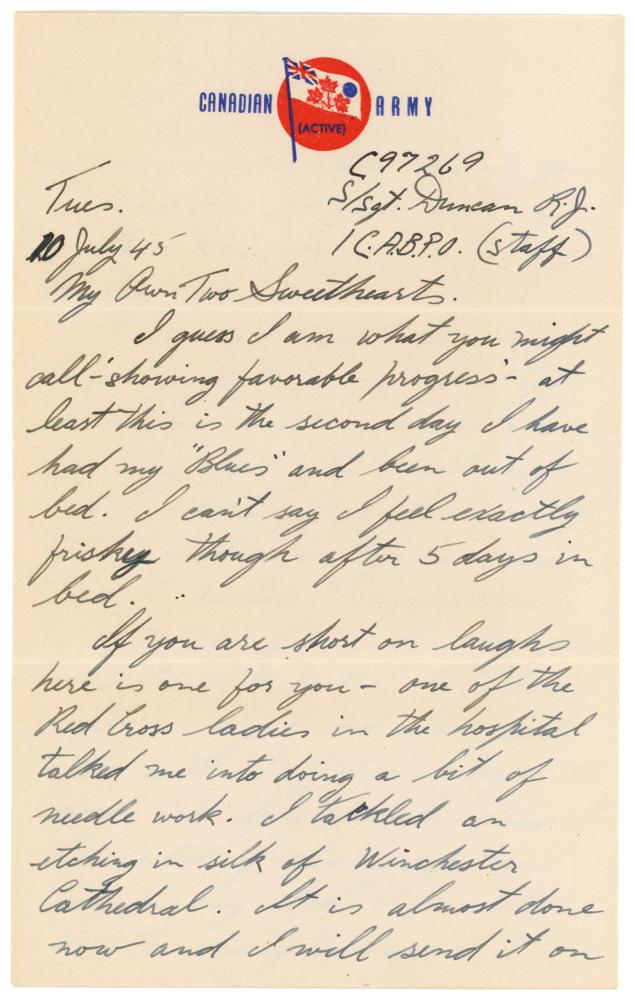 CANADIAN (ACTIVE) ARMY
C97269
Tues. S/Sgt. Duncan R.J.
10 July 45 1 C.A.B.P.O. (Staff)
My Own Two Sweethearts.
I guess I am what you might
call - "showing favorable progress" - at
least this is the second day I have
had my "Blues" and been out of
bed. I can't say I feel exactly
friskey though after 5 days in
bed.
If you are short on laughs
here is one for you - one of the
Red Cross ladies in the hospital
talked me into doing a bit of
needle work. I tackled an
etching in silk of Winchester
Cathedral. It is almost done
now and I will send it on